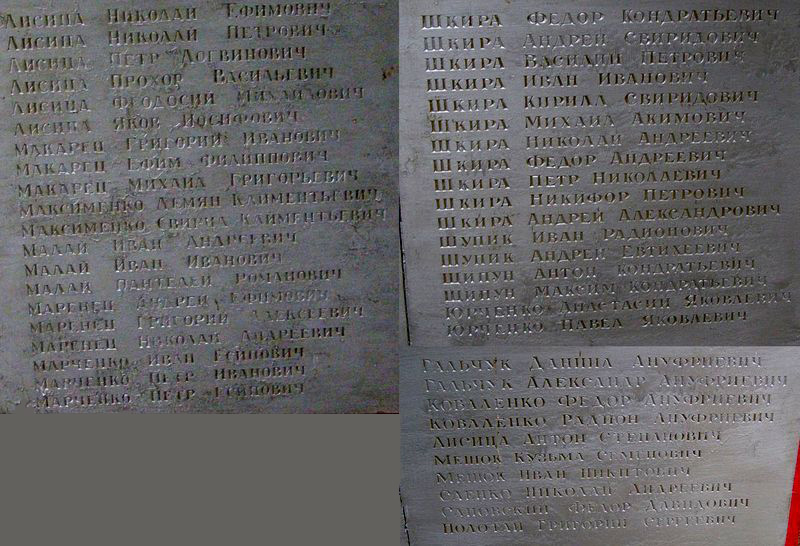 Лисица Николай Ефимович
Лисица Николай Петрович
Лисица Петр Логвинович
Лисица Прохор Васильевич
Лисица Феодосий Михайлович
Лисица Яков Иосифович
Макарец Григорий Иванович
Макарец Ефим Филиппович
Макарец Михаил Григорьевич
Максименко Демян Климентьевич
Максименко Свирид Климентьевич
Малай Иван Андреевич
Малай Иван Иванович
Малай Пантелей Романович
Маренец Андрей Ефимович
Маренец Григорий Алексеевич
Маренец Николай Андреевич
Марченко Иван Есипович
Марченко Петр Иванович
Марченко Петр Есипович
Шкира Федор Кондратьевич
Шкира Андрей Свиридович
Шкира Василий Петрович
Шкира Иван Иванович
Шкира Кирилл Свиридович
Шкира Михаил Акимович
Шкира Николай Андреевич
Шкира Федор Андреевич
Шкира Петр Николаевич
Шкира Никифор Петрович
Шкира Андрей Александрович
Шупик Иван Радионович
Шупик Андрей Евтихеевич
Щипун Антон Кондратьевич
Щипун Максим Кондратьевич
Юрченко Анастасий Яковлевич
Юрченко Павел Яковлевич
Гальчук Данила Ануфриевич
Гальчук Александр Ануфриевич
Коваленко Федор Ануфриевич
Коваленко Радион Ануфриевич
Лисица Антон Степанович
Мешок Кузьма Семенович
Мешок Иван Никитович
Саенко Николай Андреевич
Сановский Федор Давидович
Полотай Григорий Сергеевич